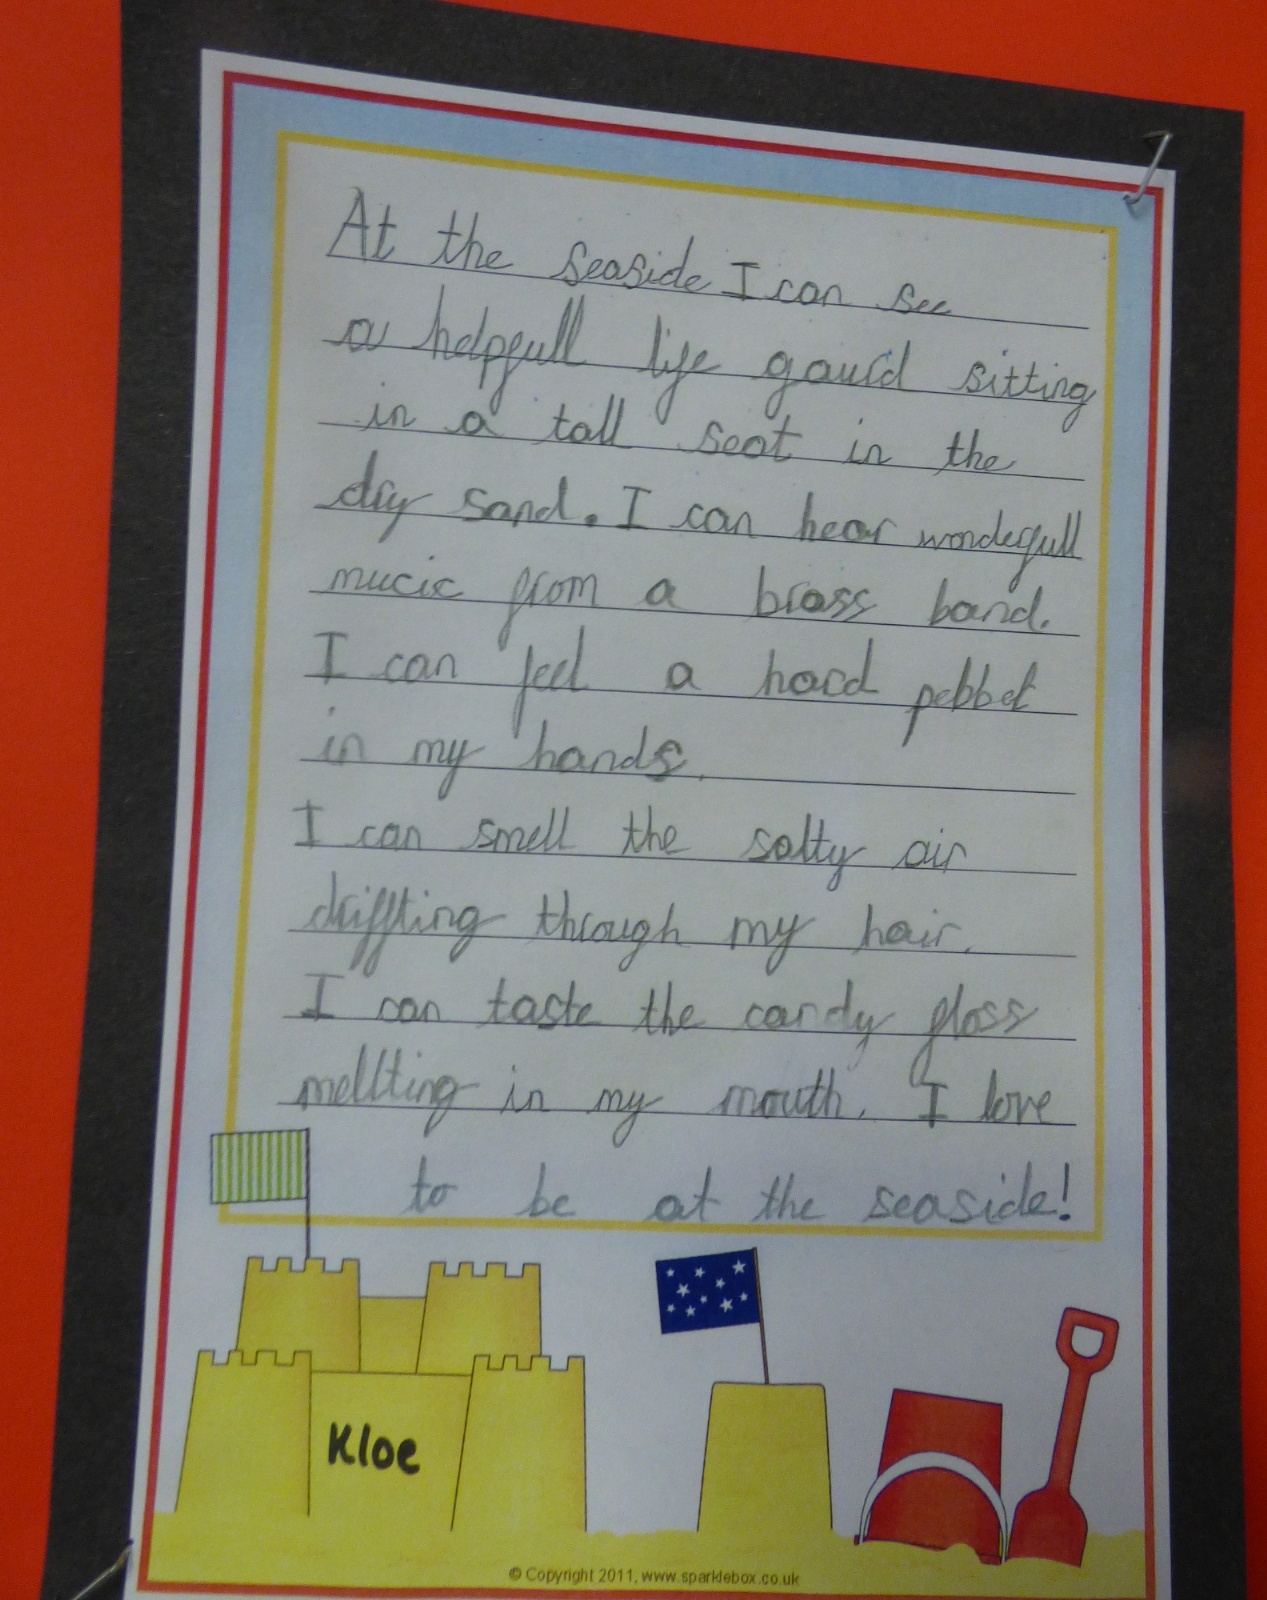 At the seaside I can see
a helpfull life gaurd sitting
in a tall seat in the
dry sand. I can hear wonderfull
mucic from a brass band.
I can feel a hard pebbel
in my hands.
I can smell the salty air
driffting through my hair.
I can taste the candy floss
mellting in my mouth. I love
to be at the seaside!
Kloe
© Copyright 2011, www.sparklebox.co.uk